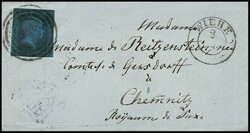 WIEHE
2
Madame
Madame de Reitzenstein
Comtesse de Gersdorff
à
Chemnitz
Royaume de Sax.